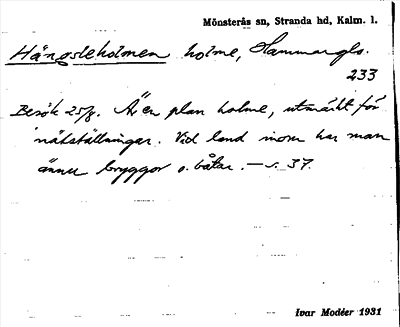 Mönsterås sn, Stranda hd, Kalm. l.
Hängsleholmen holme, Hammarglo.
233
Besök 25/8. Är en plan holme, utmärkt för
nätställningar. Vid land inom har man
ännu bryggor o. båtar. — s. 37.
Ivar Modéer 1931